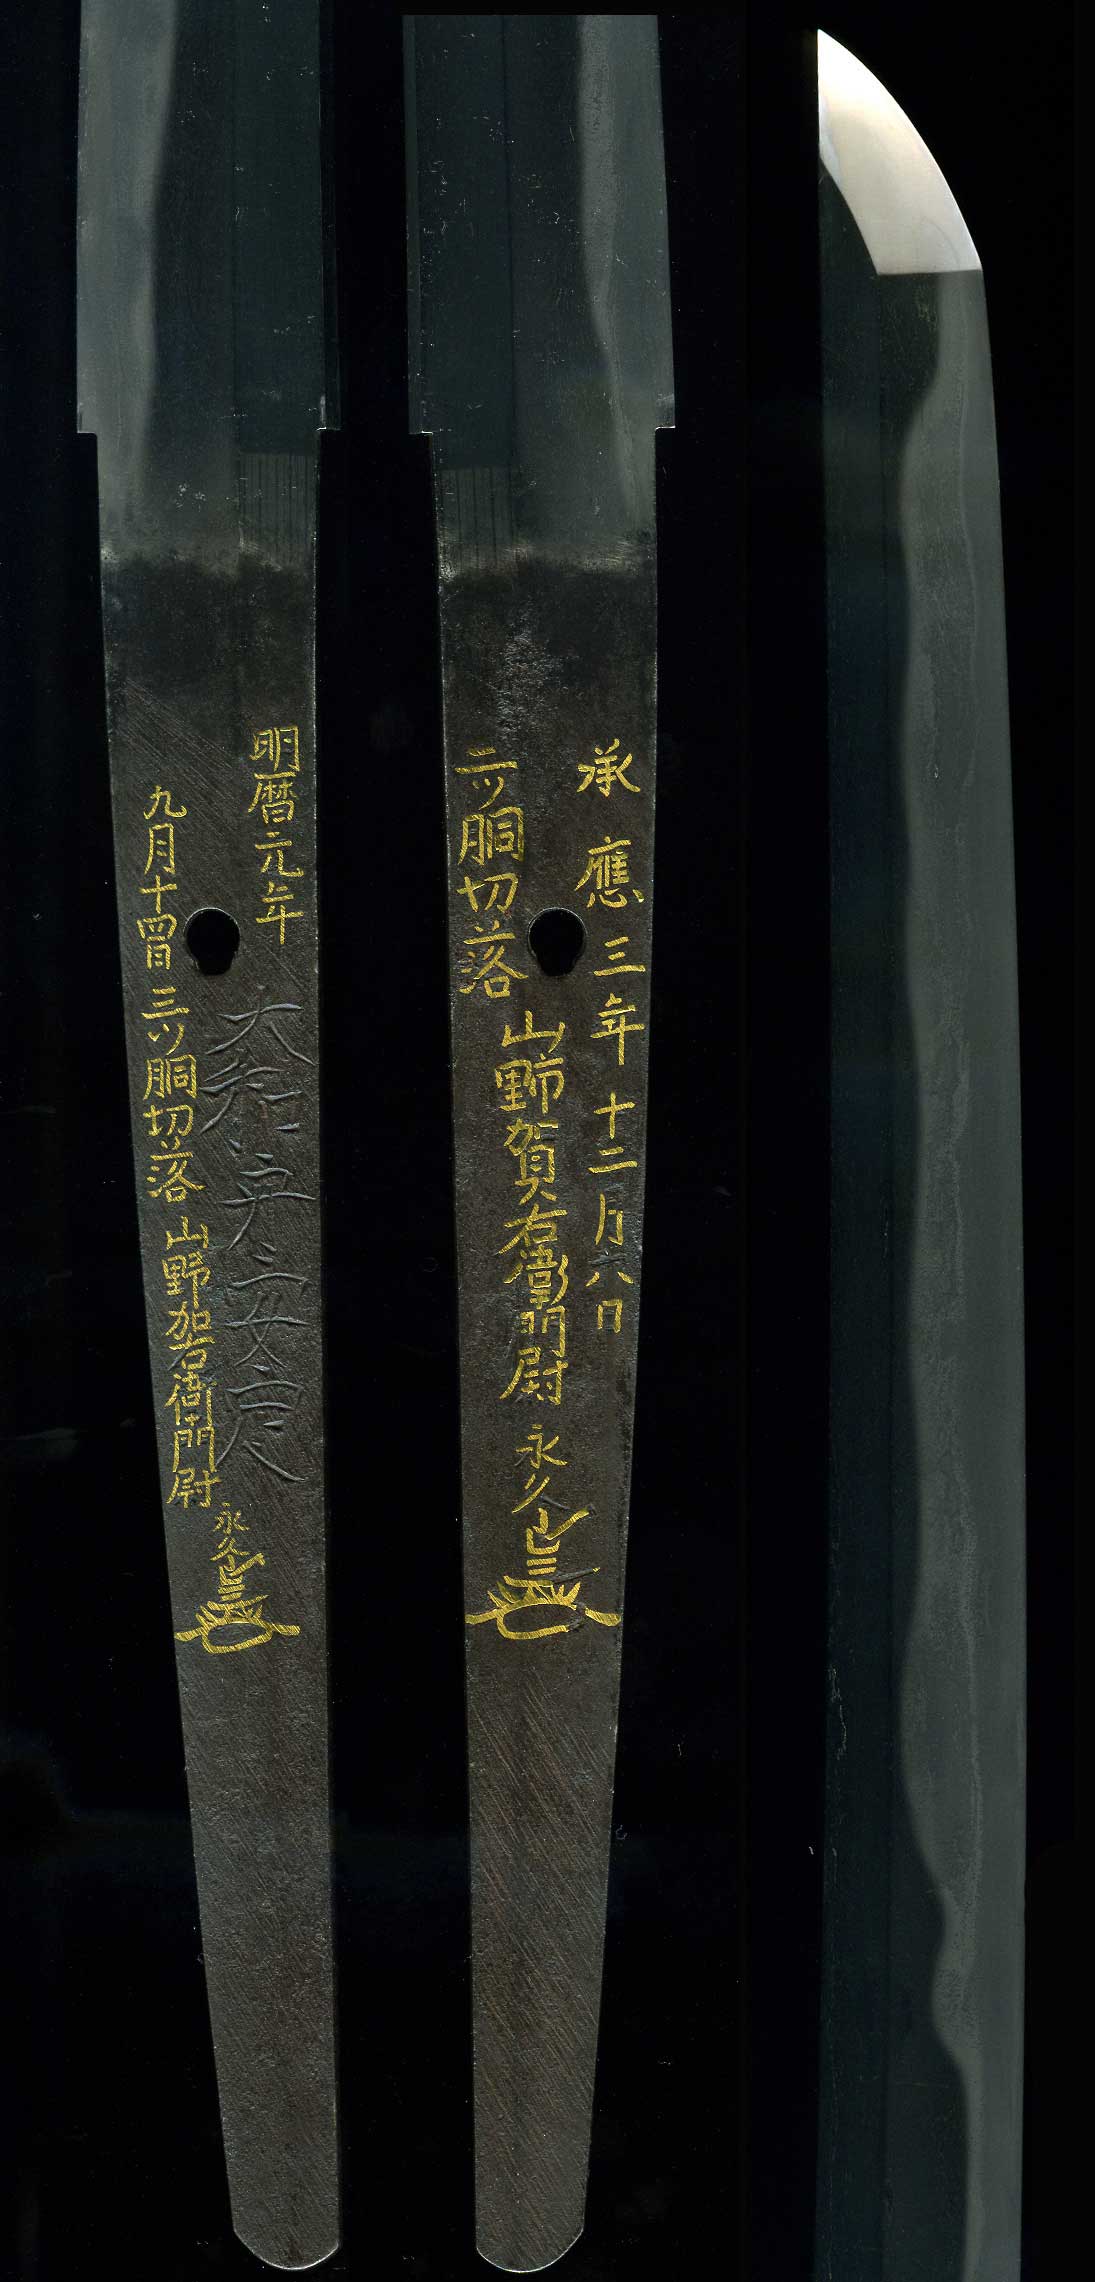 明暦元年
大和守安定
九月十四日三ツ胴切落山野加右衛門尉永久
承應三年十二月八日
二ツ胴切落山野賀右衛門尉永久